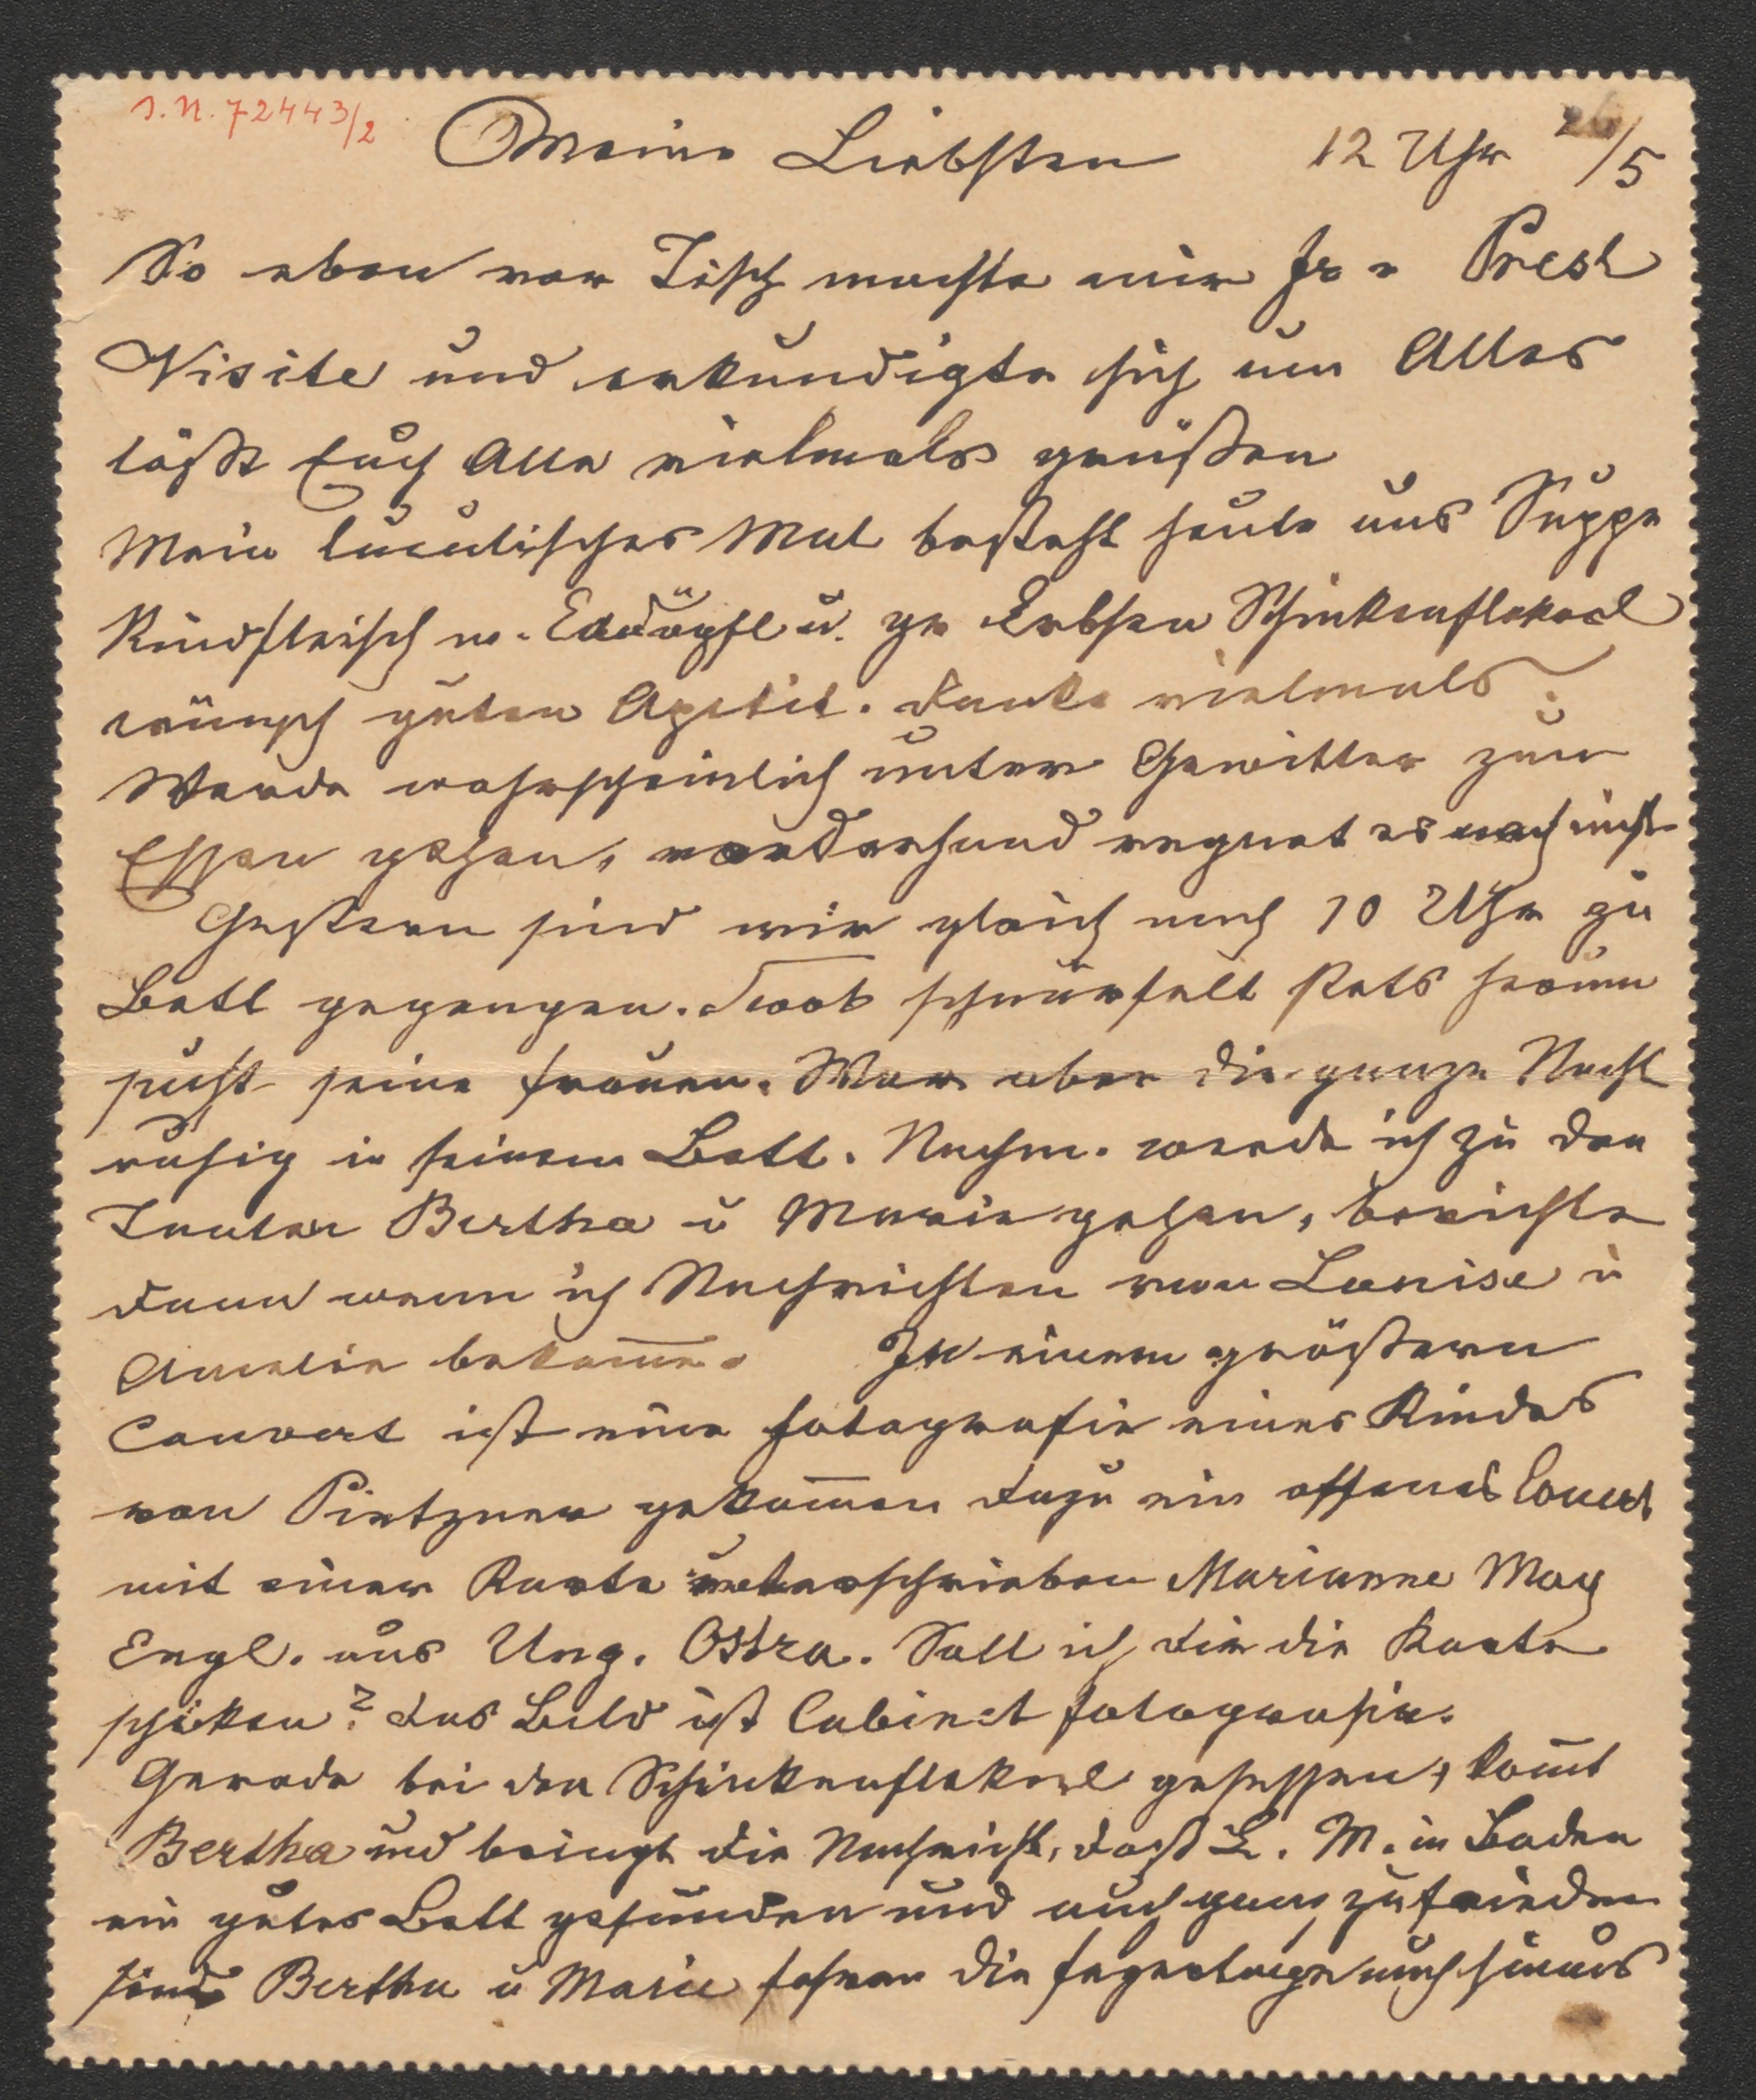 I. N. 72443/2
Meine Liebsten 12 Uhr 26/5
So eben vor Tisch machte mir Fr v Presl
Visite und erkundigte sich um Alles
läßt Euch Alle vielmals grüßen
Mein luculisches Mal besteht heute aus Suppe
Rindfleisch m. Erdäpfl u. gr Erbsen Schinkenflekerl
wünsch guten Apetit. Danke vielmals.
Werde wahrscheinlich unterm Gewitter zum
Essen gehen, vorderhand regnet es noch nicht
Gestern sind wir gleich nach 10 Uhr zu
Bett gegangen. schnürfelt stets herum
sucht seine Frauen. War aber die ganze Nacht
ruhig in seinem Bett. Nachm. werde ich zu den
Tanten Bertha u Marie gehen, berichte
dann wenn ich Nachrichten von Louise u
Amelie bekom̅e. In einem größeren
Couvert ist eine Fotografie eines Kindes
von Pietzner gekom̅en dazu ein offenes Couvert
mit einer Karte unterschrieben Marianne May
Engl. aus Ung. Ostra. Soll ich dir die Karte
schicken? Das Bild ist Cabinet fotografie.
Gerade bei den Schinkenflekerl gesessen, kom̅t
Bertha und bringt die Nachricht, daß L. M. in Baden
ein gutes Bett gefunden und auch ganz zufrieden
sind Bertha u Marie fahren die Feyertage auch hinaus